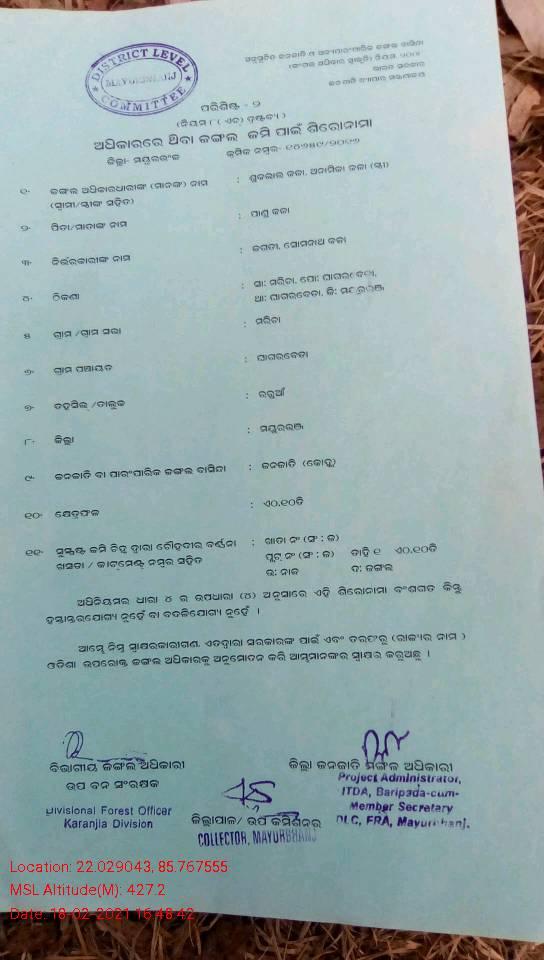 DISTRICT LEVEL
MAYURBHANJ
COMMITTEE
ଅନୁସୂଚିତ ଜନଜାତି ଓ ଅନ୍ୟପାରଂପାରିକ ଜଙ୍ଗଲ ବାସିନ୍ଦା
(ଜଂଗଲ ଅଧିକାର ସ୍ବୀକୃତି) ନିୟମ ୨୦୦୮
ଭାରତ ସରକାର
ଜନଜାତି ବ୍ୟାପାର ମନ୍ତ୍ରଣାଳୟ
ପରିଶିଷ୍ଟ - ୨
(ନିୟମ ୮ (ଏଚ୍) ଦ୍ରଷ୍ଟବ୍ୟ)
ଅଧିକାରରେ ଥିବା ଜଙ୍ଗଲ ଜମି ପାଇଁ ଶିରୋନାମା
ଜିଲ୍ଲା- ମୟୁରଭଂଜ କ୍ରମିକ ନମ୍ବର-
୧- ଜଙ୍ଗଲ ଅଧିକାରଧାରୀଙ୍କ (ମାନଙ୍କ) ନାମ : ଶୁକଲାଲ କଳା, ଅନାମିକା କଳା (ସ୍ତ୍ରୀ)
(ସ୍ୱାମୀ/ସ୍ତ୍ରୀଙ୍କ ସହିତ)
୨- ପିତା/ମାତାଙ୍କ ନାମ : ପାଣ୍ଡୁ କଳା
୩- ନିର୍ଭରକାରୀଙ୍କ ନାମ : ଜଗତୀ, ସୋମନାଥ କଳା
୪- ଠିକଣା : ସା: ମରିଚା, ପୋ: ଘାଗରବେଡା,
ଥା: ଘାଗରବେଡା, ଜି: ମୟୁରଭଞ୍ଜ
୫ ଗ୍ରାମ /ଗ୍ରାମ ସଭା : ମରିଚା
୬- ଗ୍ରାମ ପଞ୍ଚାୟତ : ଘାଗରବେଡା
୭- ତହସିଲ୍ /ତାଲୁକ : ରରୁଆଁ
୮- ଜିଲ୍ଲା : ମୟୁରଭଞ୍ଜ
୯- ଜନଜାତି ବା ପାରଂପାରିକ ଜଙ୍ଗଲ ବାସିନ୍ଦା : ଜନଜାତି (କୋହ୍ଲ)
୧୦- କ୍ଷେତ୍ରଫଳ : ଏ୦.୧୦ଡି
୧୧- ସୁସ୍ପଷ୍ଟ ଜମି ଚିହ୍ନ ଦ୍ୱାରା ଚୌହଦୀର ବର୍ଣ୍ଣନା : ଖାତା ନଂ (ସଂ : ଜ)
ଖସଡା / କାଟ୍‌ମେଣ୍ଟ ନମ୍ବର ସହିତ ପ୍ଲଟ୍ ନଂ (ସଂ : ଜ) ତାହି ୧ ଏ୦.୧୦ଡି
ଉ: ନାଳ ଦ: ଜଙ୍ଗଲ
ଅଧିନିୟମର ଧାରା ୪ ର ଉପଧାରା (୪) ଅନୁସାରେ ଏହି ଶିରୋନାମା ବଂଶଗତ କିନ୍ତୁ
ହସ୍ତାନ୍ତରଯୋଗ୍ୟ ନୁହେଁ ବା ବଦଳିଯୋଗ୍ୟ ନୁହେଁ ।
ଆମ୍ଭେ ନିମ୍ନ ସ୍ୱାକ୍ଷରକାରୀଗଣ, ଏତଦ୍ୱାରା ସରକାରଙ୍କ ପାଇଁ ଏବଂ ତରଫରୁ (ରାଜ୍ୟର ନାମ )
ଓଡିଶା ଉପରୋକ୍ତ ଜଙ୍ଗଲ ଅଧିକାରକୁ ଅନୁମୋଦନ କରି ଆମ୍ଭମାନଙ୍କର ସ୍ୱାକ୍ଷର କରୁଅଛୁ ।
ବିଭାଗୀୟ ଜଙ୍ଗଲ ଅଧିକାରୀ
ଉପ ବନ ସଂରକ୍ଷକ
Divisional Forest Officer
Karanjia Division
ଜିଲ୍ଲାପାଳ/ ଉପ କମିଶନର
COLLECTOR, MAYURBHANJ
ଜିଲ୍ଲା ଜନଜାତି ମଙ୍ଗଳ ଅଧିକାରୀ
Project Administrator,
ITDA, Baripada-cum-
Member Secretary
DLC, FRA, Mayurbhanj.
Location: 22.029043, 85.767555
MSL Altitude(M): 427.2
Date: 18-02-2021 16:48:42